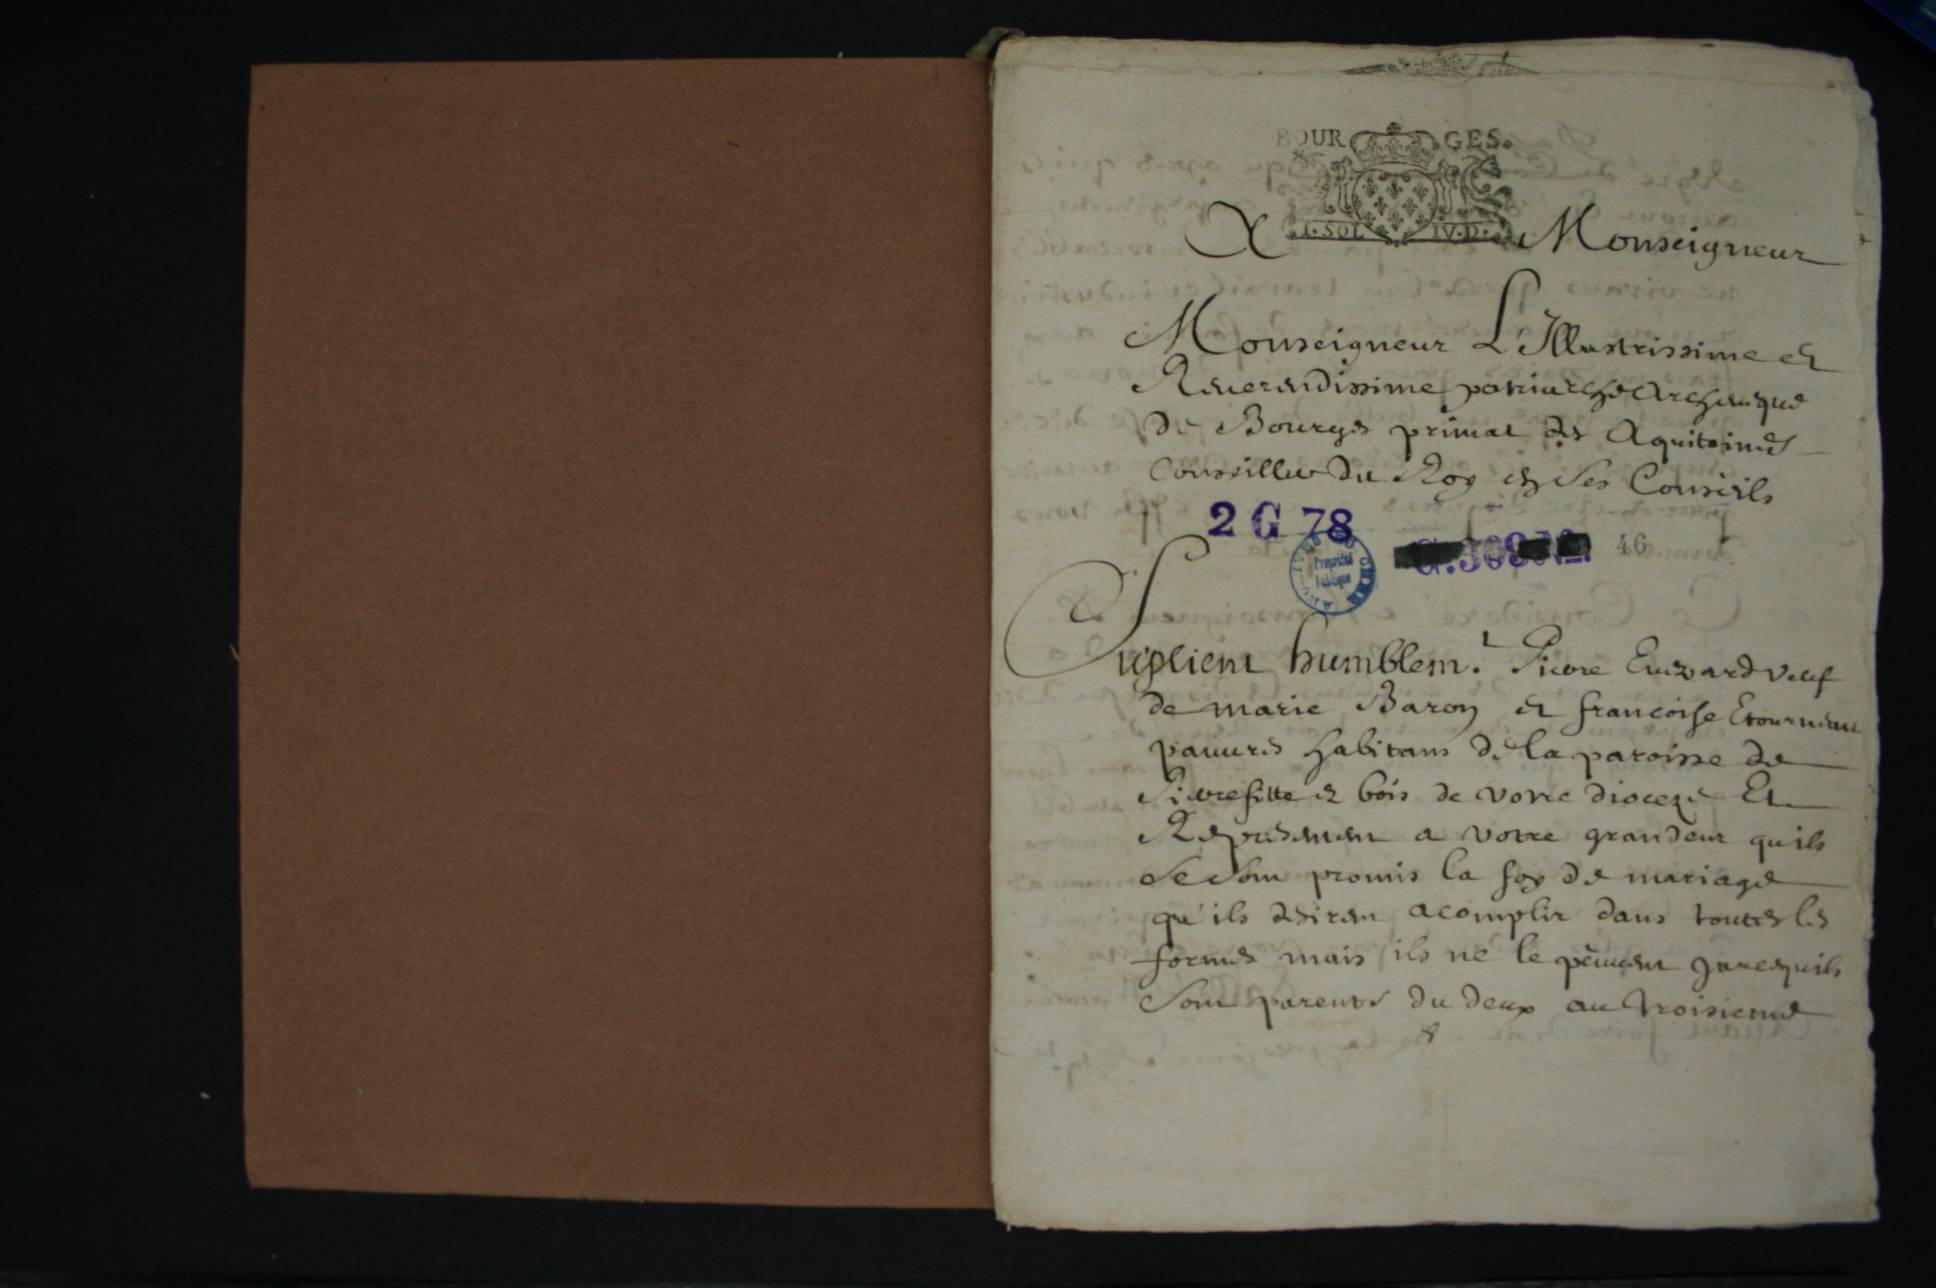 BOURGES.
I. SOL IV. D.
A Monseigneur
Monseigneur L'Illustrissime et
Reverendissime patriarche Archeuque
de Bourges primat des Aquitaines
Conseiller du Roy en Ses Conseils
2 G 78
Propriété
Publique
G. 309 No. 46
Suplient humblem.t Pierre Euzvard veuf
de marie Baron et francoise Etourneau
pauures habitans de la paroisse de
Pierrefitte es bois de votre dioceze Et
Representent a votre grandeur quils
se sont promis la foy de mariage
qu'ils desirent acomplir dans toutes les
formes mais ils ne le peuuent parcequils
sont parents du deux au troisieme